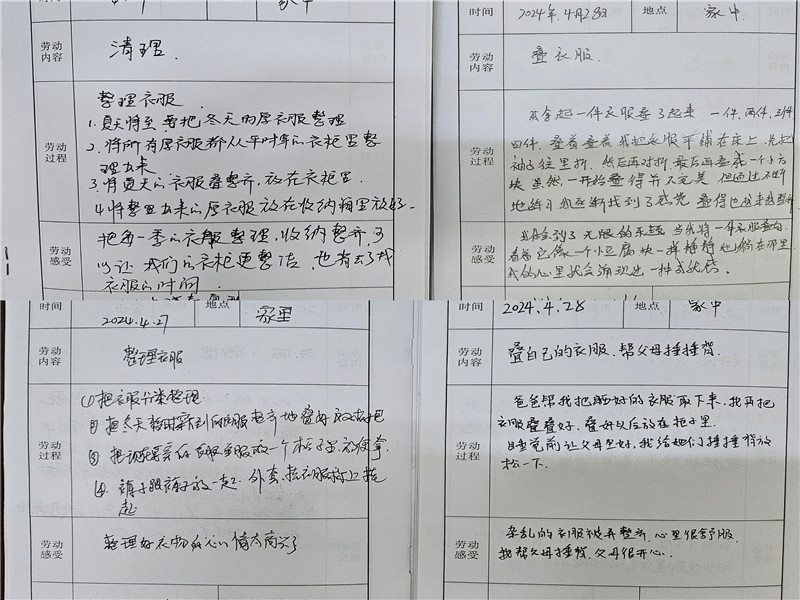 家中
劳动内容
清理.
劳动过程
整理衣服.
1.夏天将至要把冬天的厚衣服整理
2.将所有厚衣服都从平时穿的衣柜里整
理出来
3.将夏天的衣服叠整齐,放在衣柜里.
4.将整理出来的厚衣服放在收纳箱里放好.
劳动感受
把每一季的衣服整理,收纳整齐,可
以让我们的衣柜更整洁,也省去了找
衣服的时间.
时间
2024年4月28日
地点
家中
劳动内容
叠衣服.
劳动过程
我拿起一件衣服叠了起来.一件,两件,三件
四件.叠着叠着我把衣服平铺在床上,先把
袖子往里折,然后再对折,最后再叠成一个小方
块.虽然,一开始叠得并不完美,但通过不断
地练习我逐渐找到了感觉,叠得也越来越整齐
劳动感受
我体会到了无限的乐趣.当我将一件衣服叠好,
看着它像一个小豆腐块一样静静地躺在那里
我的心里就会涌现出一种成就感.
时间
2024.4.27
地点
家里
劳动内容
整理衣服
劳动过程
①把衣服分类整理
②把冬天暂时穿不到的衣服整齐地叠好
③ 放一个柜子里方便拿
④.裤子跟裤子放一起,外套挂衣服架上挂
起
劳动感受
整理好衣物我心情太高兴了
时间
2024.4.28
地点
家中
劳动内容
叠自己的衣服.帮父母捶捶背.
劳动过程
爸爸帮我把晒好的衣服取下来,我再把
衣服叠叠好.叠好以后放在柜子里.
睡觉前让父母坐好,我给她们捶捶背放
松一下.
劳动感受
杂乱的衣服被弄整齐.心里很舒服.
我帮父母捶背.父母很开心.